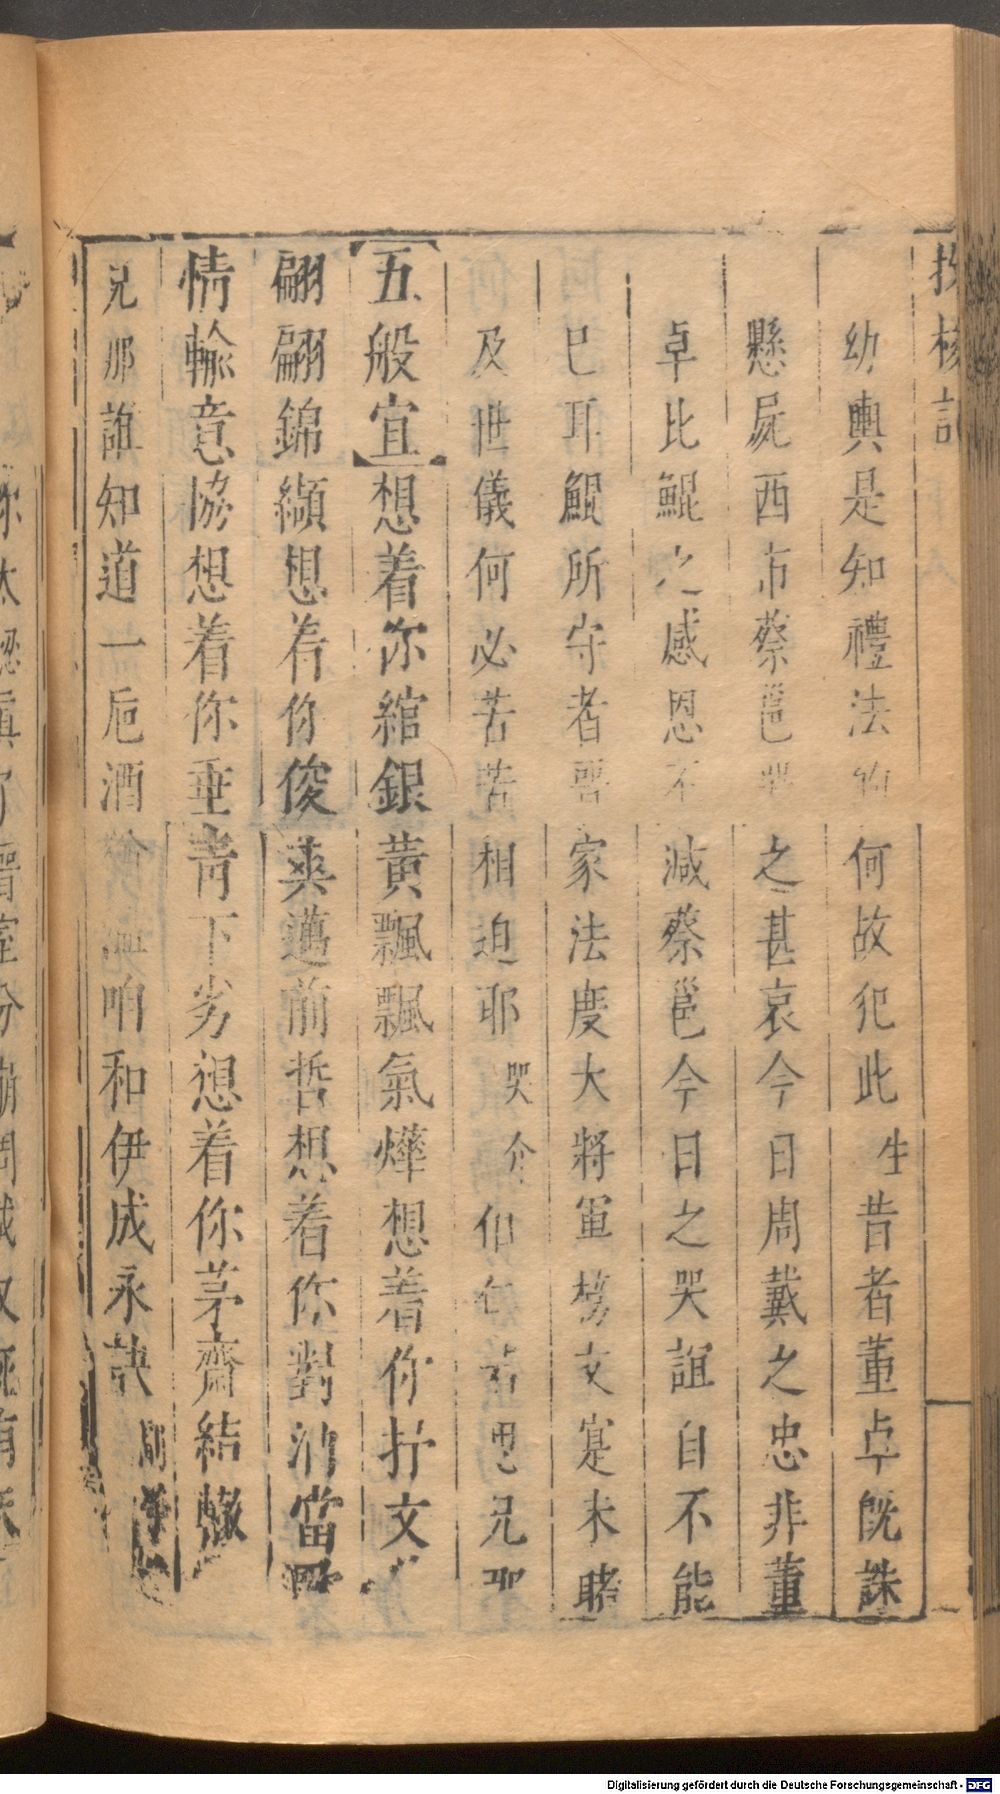 投梭記
幼輿是知禮法的何故犯此生昔者董卓旣誅
懸屍西市蔡邕哭之甚哀今日周戴之忠非董
卓比鯤之感恩不減蔡邕今日之哭誼自不能
已耳鯤所守者吾家法度大將軍榜文寔未睹
及世儀何必苦苦相迫耶哭介伯仁若思兄
【五般宜】想着你綰銀黃飄飄氣燁想着你抒文
翩翩錦纈想着你俊爽邁前哲想着你對酒當
情輸意協想着你垂靑下劣想着你茅齋結轍
兄那誰知道一巵酒介咱和伊成永訣
Digitalisierung gefördert durch die Deutsche Forschungsgemeinschaft - DFG